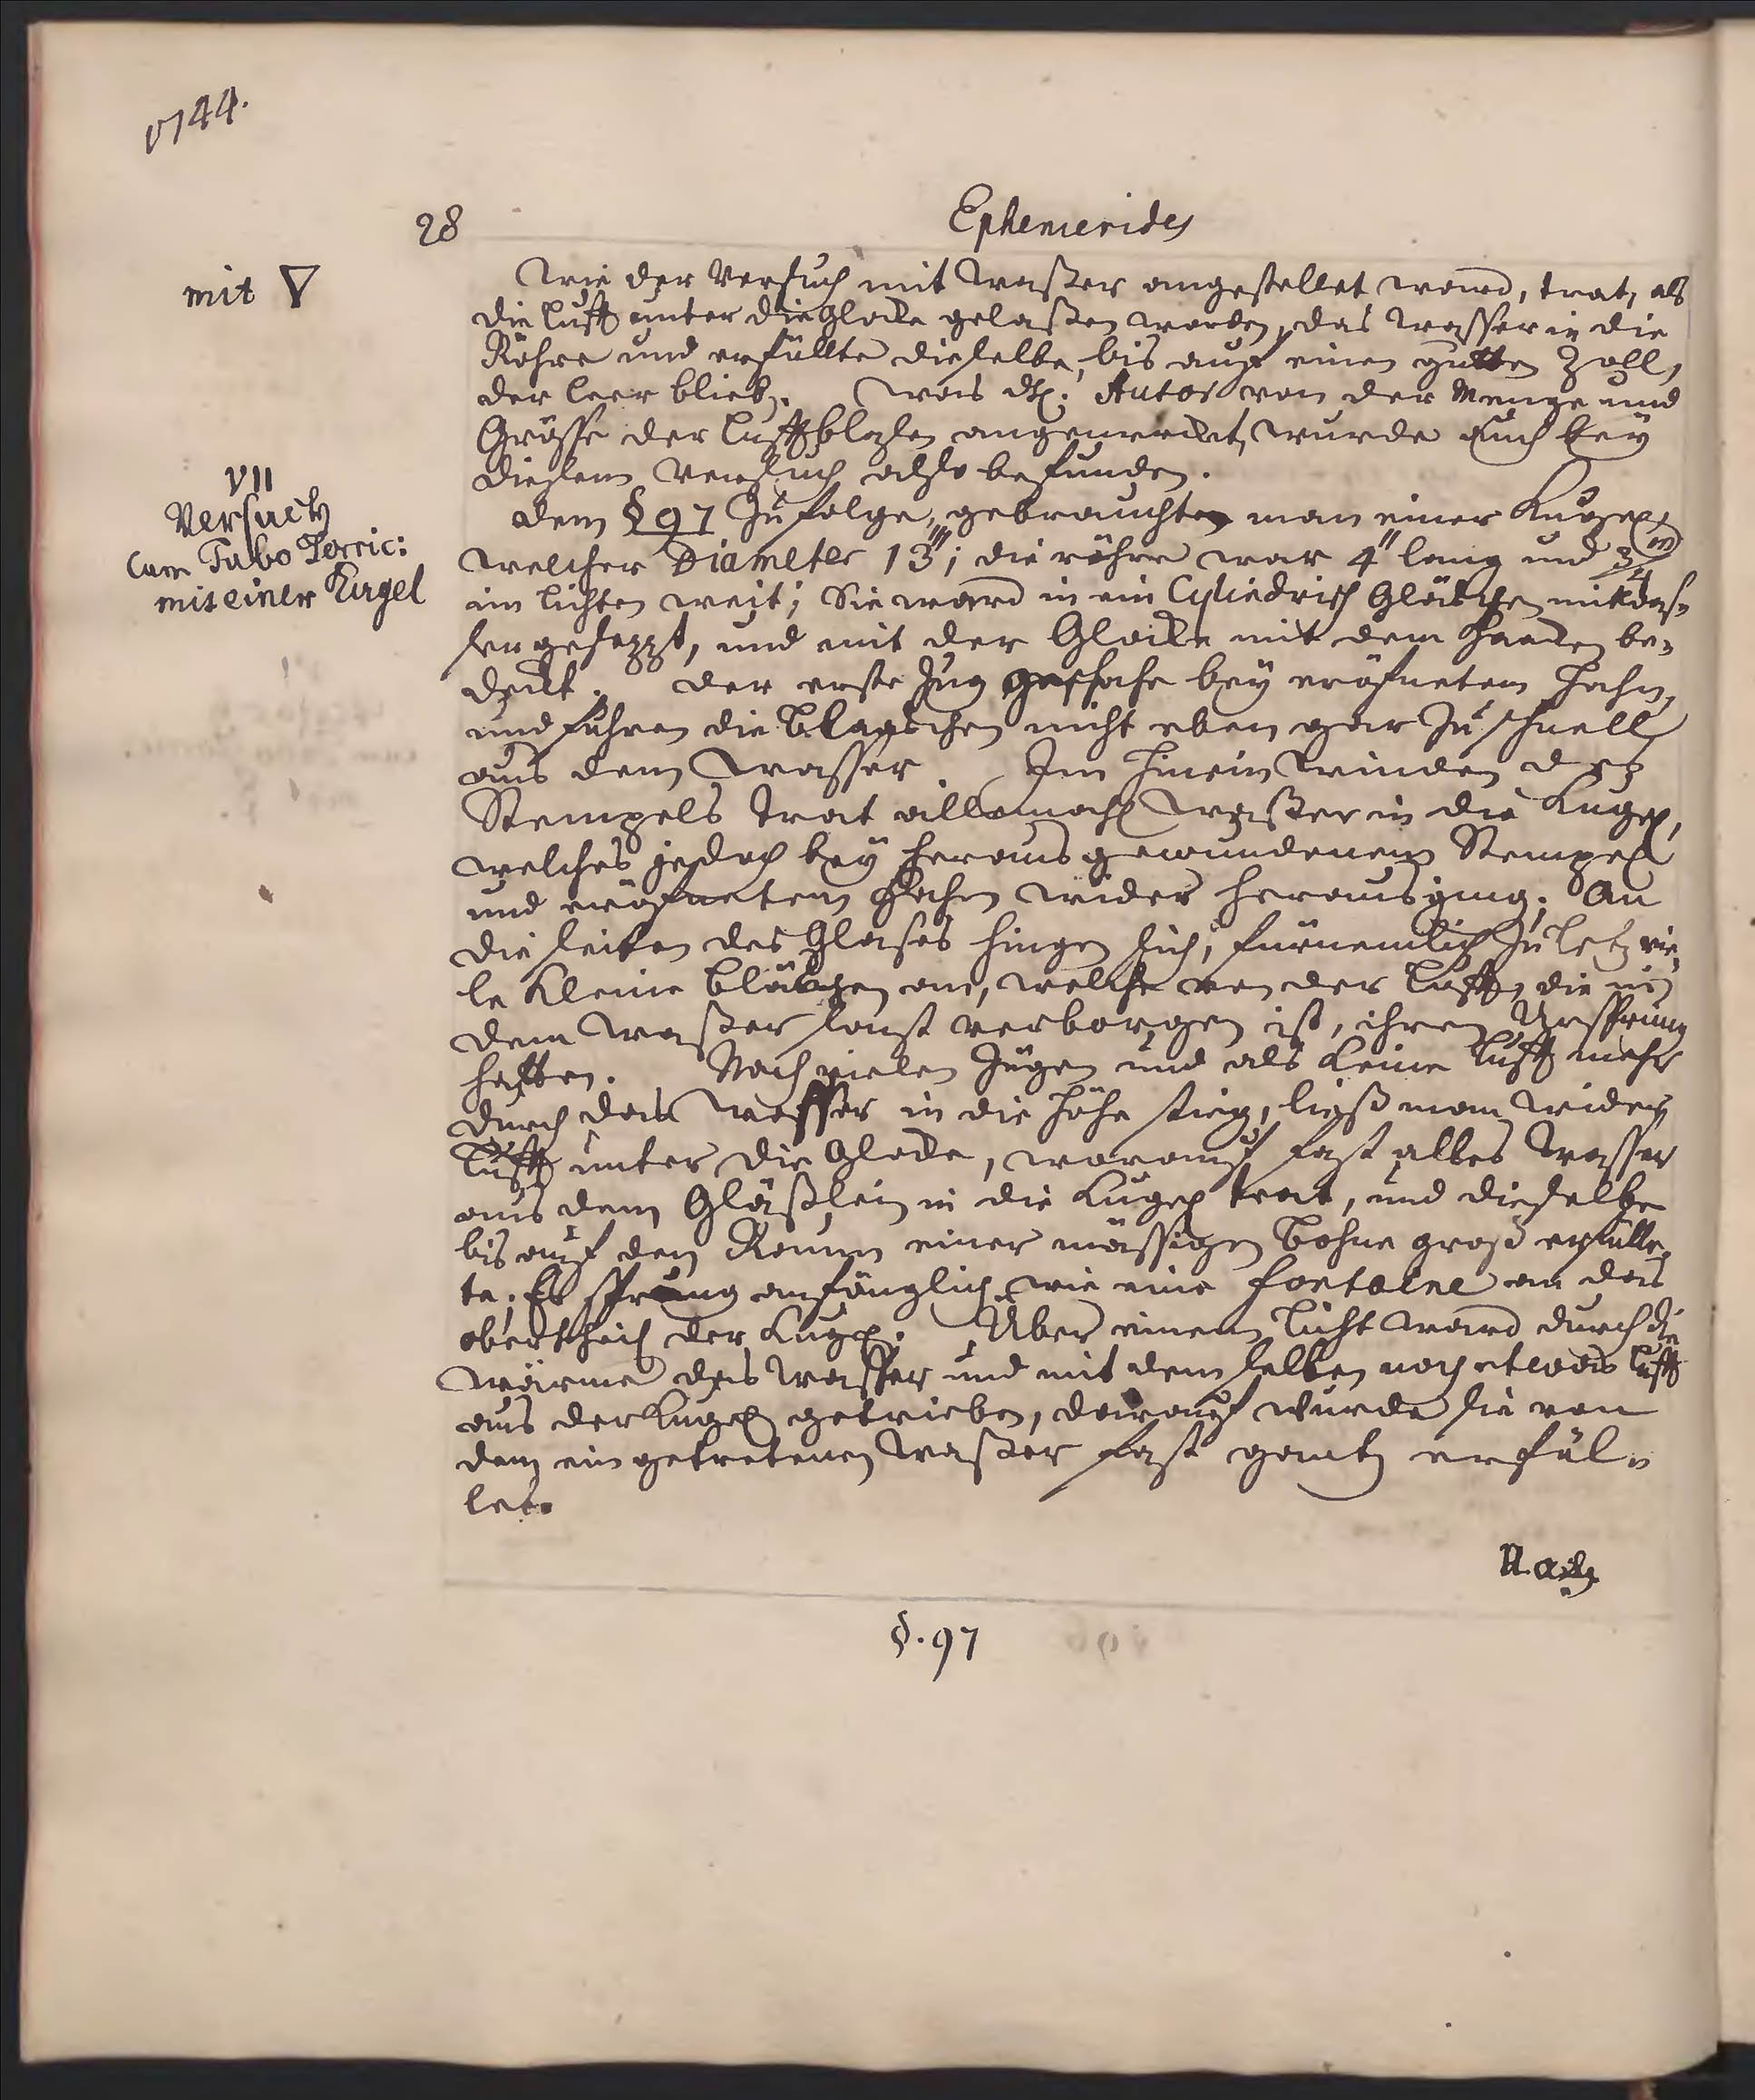 1744.
28 Ephemerides
mit ▽
Wie der Versuch mit Waßer angestellet ward, trat, als
die Lufft unter die Glocke gelaßen worden, das Wasser in die
Röhre und erfüllte dieselbe, bis auf einen gutten Zoll,
der leer blieb. Was Autor von der Menge und
Grösse der Lufftblasen angemerckt, wurde auch bey
diesem Versuch also befunden.
VII
Versuch
Cum Tubo Torric:
mit einer Kugel
dem § 97 zu folge, gebrauchte man einer Kugel,
welcher Diameter 13'''; die röhre war 4'' lang und 3/4'''
im lichten weit; Sie ward in ein Cyliedrisch Gläschen mit Waß⸗
ser gesezzt, und mit der Glocke mit dem Haacken be⸗
deckt. der erste Zug geschahe bey eröfnetem Hahn,
und fuhren die Blaeschen nicht eben gar zu schnell
aus dem Wasser. Im hinein winden des
Stempels trat allemahl Waßer in die Kugel,
welches jedoch bey heraus gewundenem Stempel
und eröfnetem Hahn wider herausging. An
die seiten des Glases hingen sich, fürnemlich zu letz vie⸗
le kleine bläschen an, welche von der Lufft, die in
dem Waßer sonst verborgen ist, ihren Ursprung
hatten. Nach vielen Zügen und als keine Lufft mehr
durch das Wasser in die Höhe stieg, ließ man wider
Lufft unter die Glocke, worauf fast alles Wasser
aus dem Gläßlein in die Kugel trat, und dieselbe
bis auf den Raum einer mässigen Bohne groß erfülle⸗
te. Es sprang anfänglich wie eine fontaine an das
obertheil der Kugel. Über einem Licht ward durch die
Wärme das Wasser und mit demselben noch etwas Lufft
aus der Kugel getrieben, darauf wurde sie von
dem ein getretenen Waßer fast gantz erfül⸗
let.
Nach
§. 97